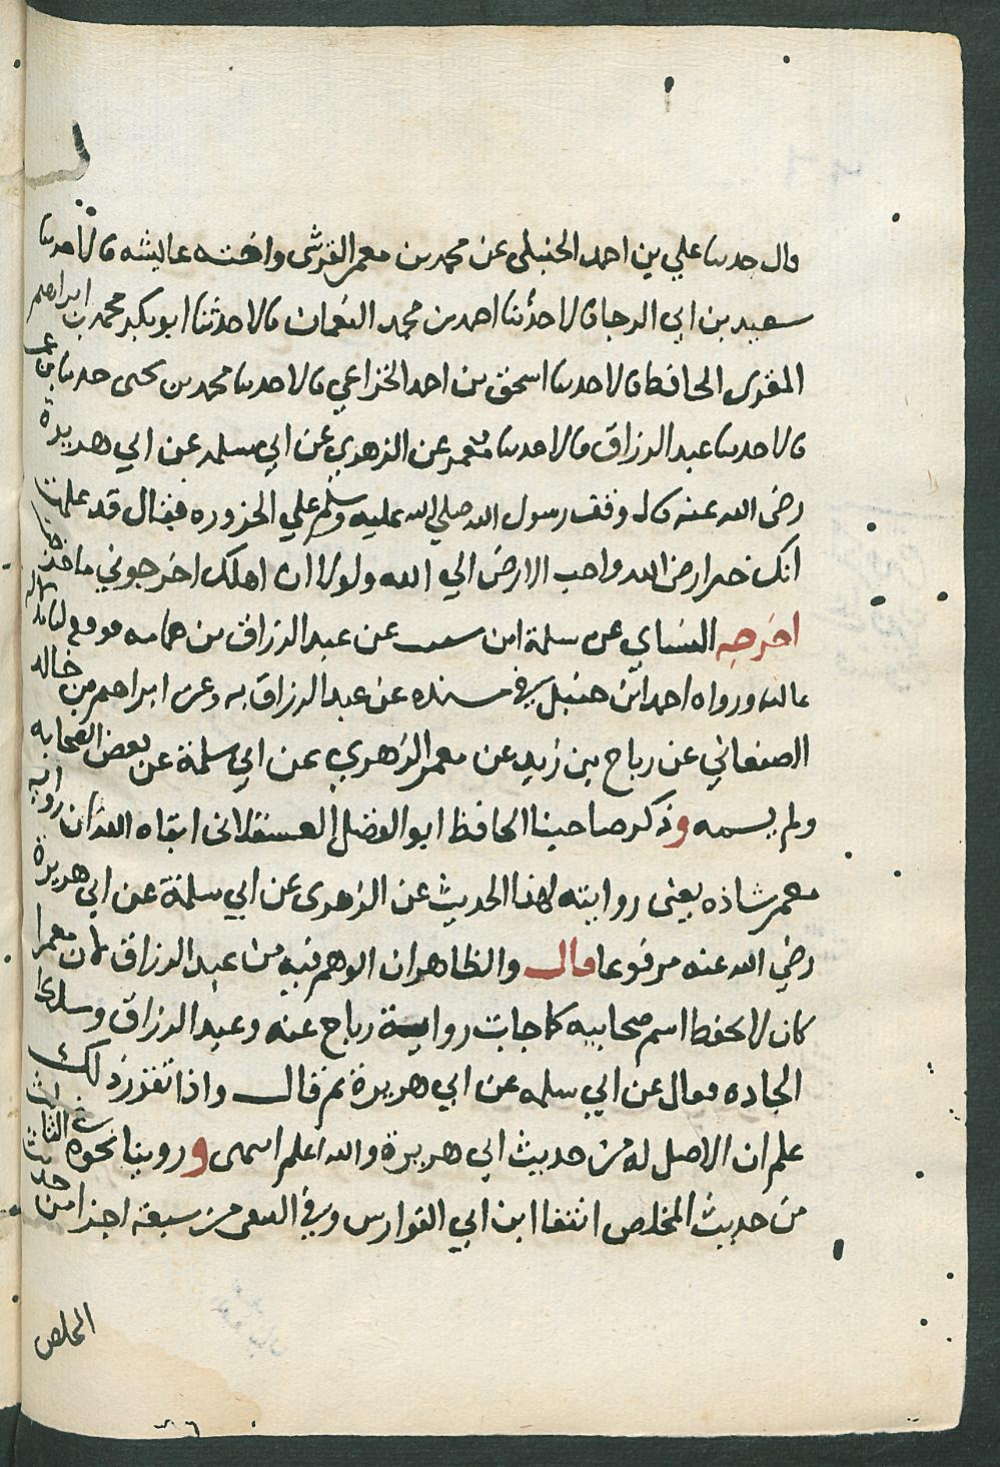 قال حدثنا علي بن احمد الحنبلى عن محمد بن معمر القرشى واخته عايشه قالا حدثنا
سعيد بن ابي الرجا قالا حدثنا احمد بن محمد النعمان قالا حدثنا ابو بكر محمد بن ابراهيم
المقرى الحافظ قالا حدثنا اسحق بن احمد الخزاعي قالا حدثنا محمد بن يحيى حدثنا
قالا حدثنا عبد الرزاق قالا حدثنا معمر عن الزهري عن ابي سلمه عن ابي هريرة
رضى الله عنه قال وقف رسول الله صلي الله عليه وسلم علي الحزوره فقال قد علمت
انك خير ارض الله واحب الارض الي الله ولولا ان اهلك اخرجوني ما خرجت
اخرجه النساي عن سلمة ابن شبيب عن عبد الرزاق بن همام فوقع لنا بدلا
عاليا ورواه احمد ابن حنبل في مسنده عن عبد الرزاق به وعن ابراهيم بن خالد
الصنعاني عن رباح بن زيد عن معمر الزهري عن ابي سلمة عن بعض الصحابه
ولم يسمه وذكر صاحبنا الحافظ ابو الفضل العسقلانى ابقاه الله ان رواية
معمر شاذه يعنى روايته لهذا الحديث عن الزهرى عن ابي سلمة عن ابي هريرة
رضي الله عنه مرفوعا قال والظاهر ان الوهم فيه من عبد الرزاق لان معمرا
كان لا يحفظ اسم صحابيه كما جات رواية رباح عنه وعبد الرزاق وسلك
الجاده فقال عن ابي سلمه عن ابي هريرة ثم قال واذا تقرر ذلك
علم ان لا اصل له من حديث ابي هريرة والله اعلم انتهى وروينا نحوه في الثالث
من حديث المخلص انتقا ابن ابي الفوارس وفي المنتقى من سبعة اجزا من حديث
المخلص